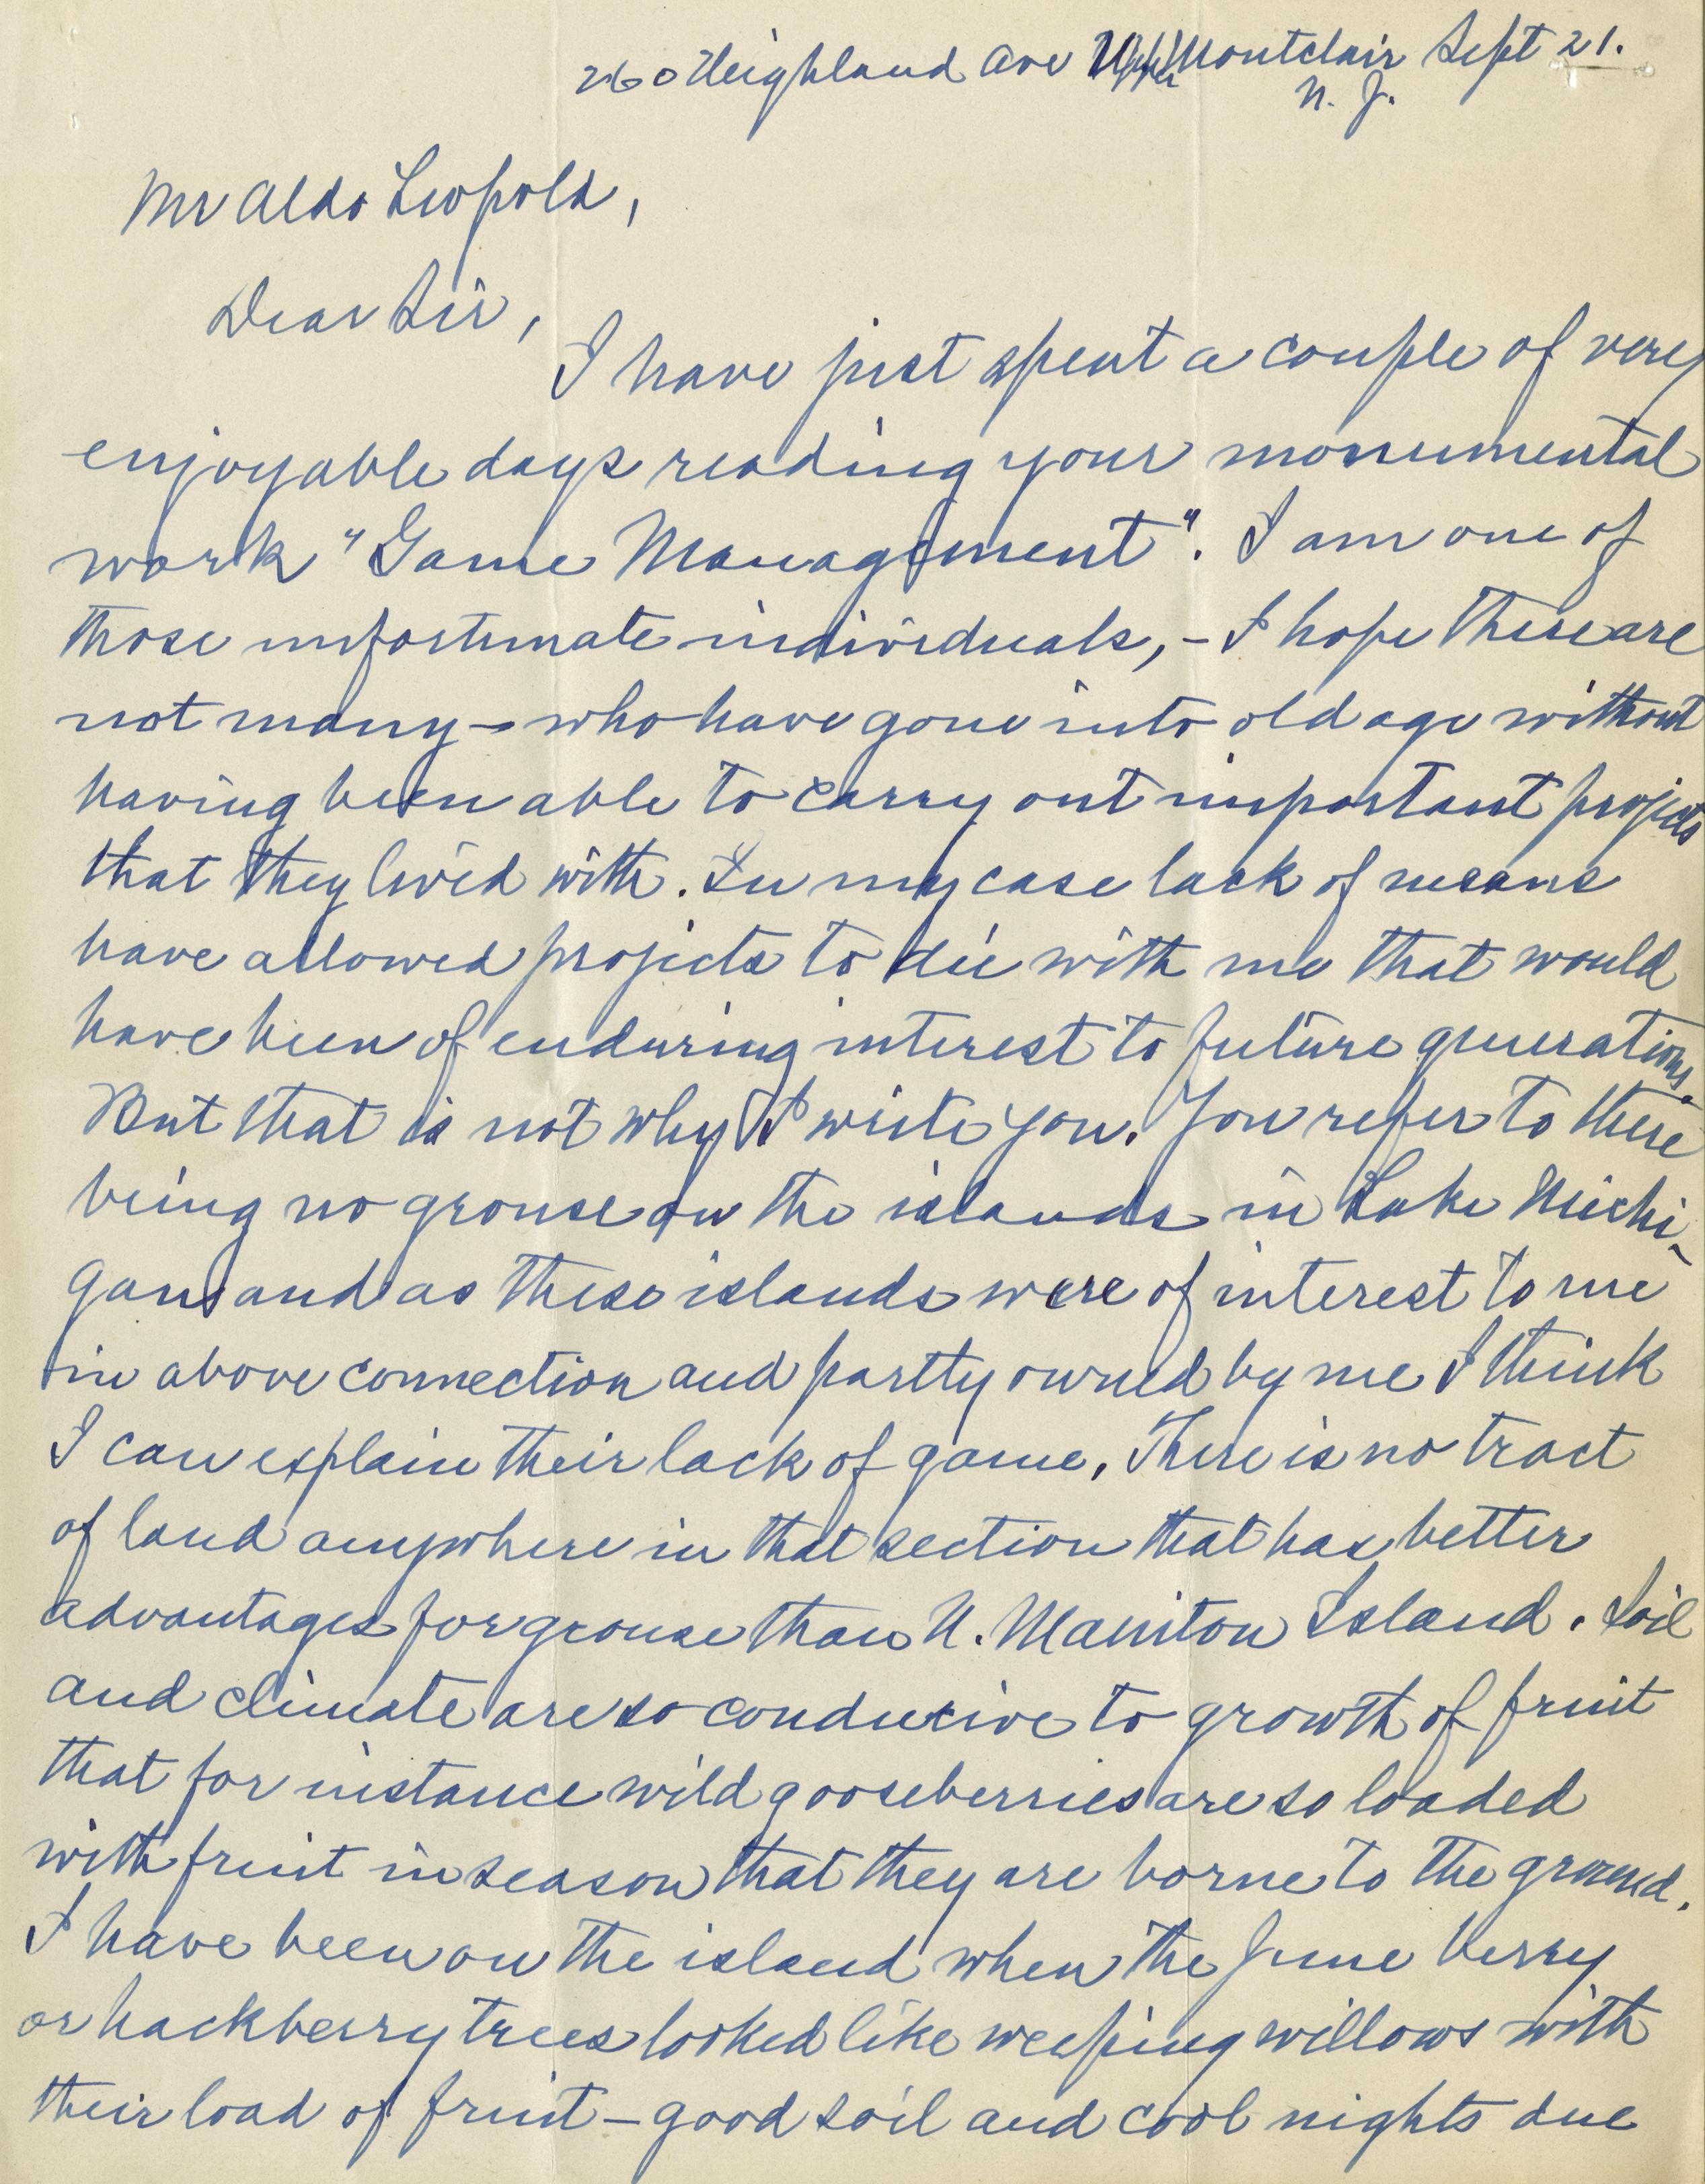 260 Heighland Ave Upper Montclair Sept 21.
N. J.
Mr Aldo Leopold,
Dear Sir,
I have just spent a couple of very
enjoyable days reading your monumental
work "Game Management". I am one of
those unfortunate individuals, - I hope there are
not many - who have gone into old age without
having been able to carry out important projects
that they lived with. In my case lack of means
have allowed projects to die with me that would
have been of enduring interest to future generations.
But that is not why I write you. You refer to there
being no grouse on the islands in Lake Michi-
gan and as these islands were of interest to me
in above connection and partly owned by me I think
I can explain their lack of game. There is no tract
of land anywhere in that section that has better
advantages for grouse than N. Manitou Island. Soil
and climate are so conducive to growth of fruit
that for instance wild gooseberries are so loaded
with fruit in season that they are borne to the ground.
I have been on the island when the June berry
or hackberry trees looked like weeping willows with
their load of fruit - good soil and cool nights due